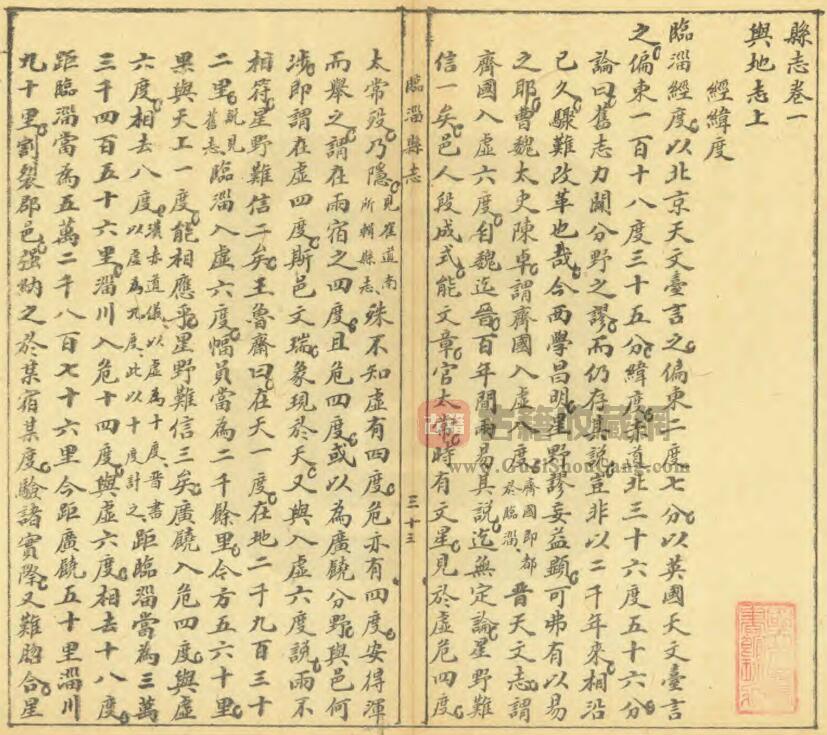 縣志卷一
輿地志上
經緯度
臨淄經度以北京天文臺言之偏東二度七分以英國天文臺言
之偏東一百十八度三十五分緯度赤道北三十六度五十六分
論曰舊志力闢分野之謬而仍存其說豈非以二千年來相沿
已久驟難改革也哉今西學昌明星野謬妄益顯可弗有以易
之耶曹魏太史陳卓謂齊國入虛八度齊國即都於臨淄晉天文志謂
齊國入虛六度自魏迄晉百年間兩易其說迄無定論星野難
信一矣邑人段成式能文章官太常時有文星見於虛危四度
臨淄縣志
三十三
太常歿乃隱見崔道南所輯縣志殊不知虛有四度危亦有四度安得渾
而舉之謂在兩宿之四度且危四度或以為廣饒分野與邑何
涉即謂在虛四度斯邑文瑞象現於天又與入虛六度說兩不
相符星野難信二矣王魯齋曰在天一度在地二千九百三十
二里說見舊志臨淄入虛六度幅員當為二千餘里今方五六十里
果與天工一度能相應乎星野難信三矣廣饒入危四度與虛
六度相去八度漢赤道儀以虛為十度晉書以虛為九度此以十度計之距臨淄當為三萬
三千四百五十六里淄川入危十四度與虛六度相去十八度
距臨淄當為五萬二千八百七十六里今距廣饒五十里淄川
九十里割裂郡邑強納之於某宿某度驗諸實際又難脗合星
古籍
古籍收藏網
www.GuJiShouCang.com